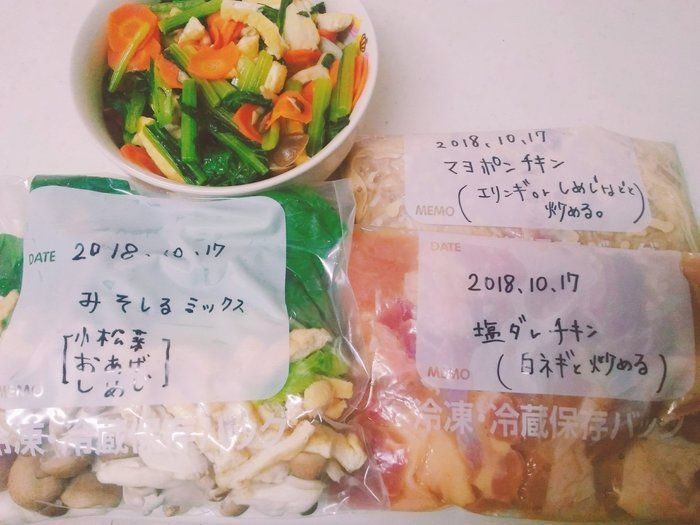 2018.10.17
マヨポンチキン
(エリンギor しめじなどと
炒める。)
MEMO
DATE
2018.10.17
塩ダレチキン
(白ネギと炒める)
MEMO
冷凍・冷蔵保存バッグ
DATE 2018.10.17
みそしるミックス
[小松菜
おあげ
しめじ]
MEMO
冷凍・冷蔵保存バッグ